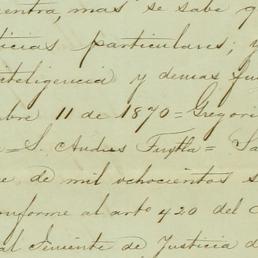 entra, mas se sabe q
icias particulares; y
nteligencia y demas
bre 11 de 1870 = Gregori
= S. Andres = Sa
e de mil ochocientos s
onforme al artº 420 del C
al Teniente de Justicia d